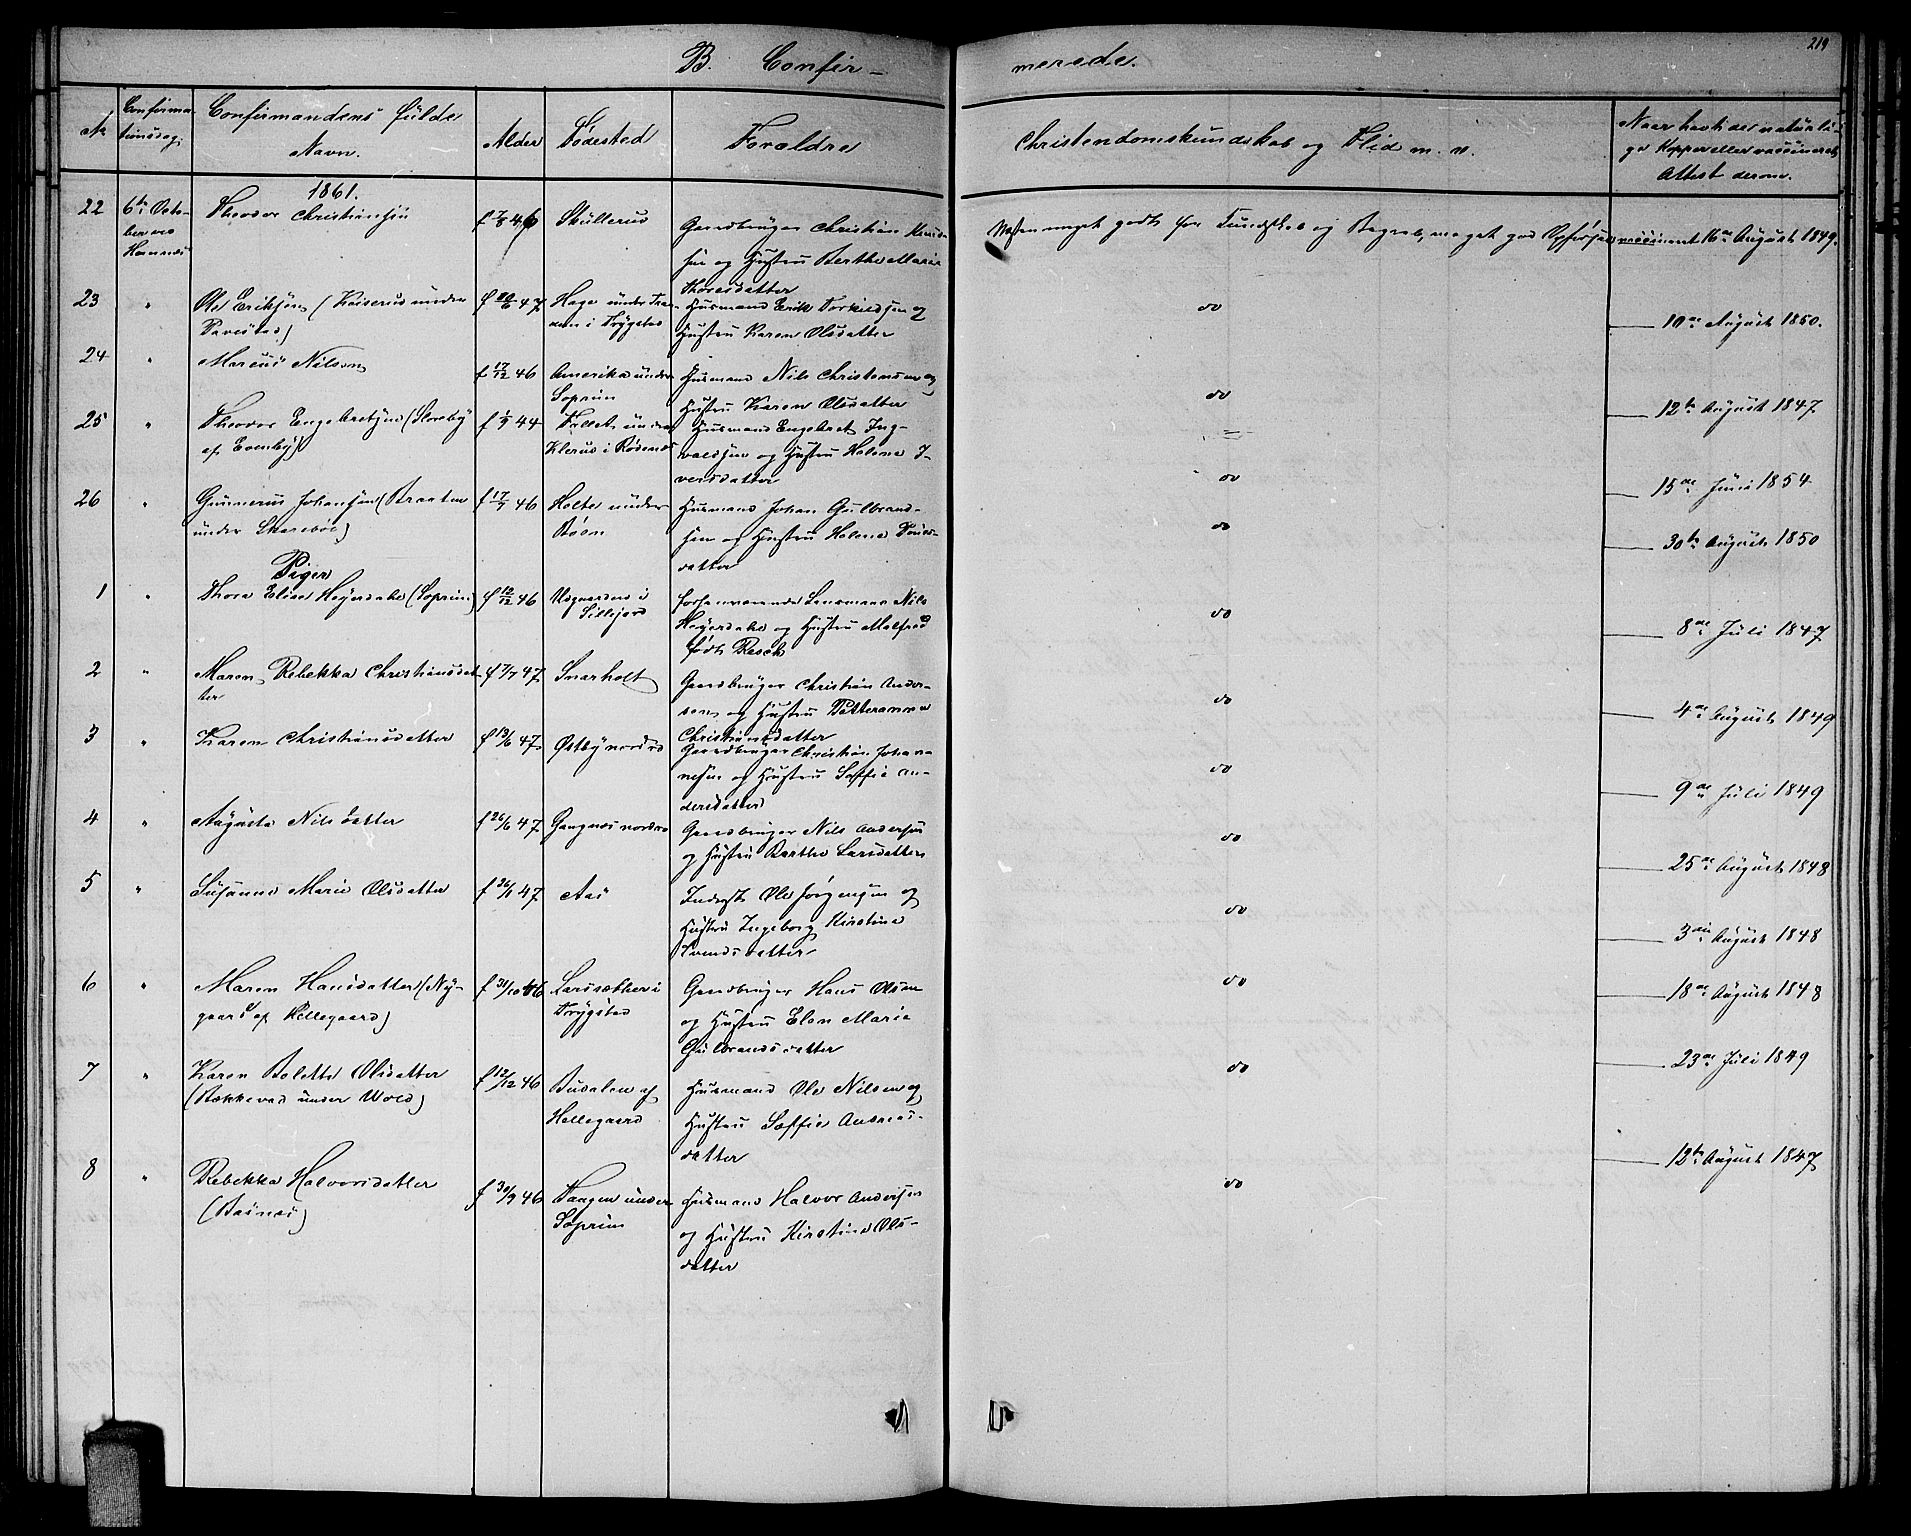 219
B. Confir-
merede.
№
Confirma-
tionsdag
Confirmandens fulde
Navn.
Alder
Fødested
Forældre
Christendomskundskab og Flid m. v.
Naar havt de naturli-
ge Kopper eller vaccineret
Attest derom.
1861.
22 6te Octo- Theodor Christiansen f 7/8 46 Skullerud Gaardbruger Christian Knud-
ber
sen og Hustru Berthe Marie
Thorsdatter
Næsten meget godt for Kundskab og Begreb, meget god Opførsel vaccineret 16de August 1849.
23 " Ole Eriksen ( under f 47 Hage under i Trygstad Huusmand Erik Torkildsen og
Hustru Karen Olsdatter
do 10de August 1850.
24 " Marcus Nilsen f 17/12 46 Amerika under
Soprim
Huusmand Nils Christensen og
Hustru Karen Olsdatter
do 12te August 1847
25 " Theodor Engebretsen (Storeby
af
f 1/9 44 under
Klerud i Rødenes
Huusmand Engebret Ing-
valdsen og Hustru Helene I-
versdatter
do 15de Juni 1854
26 " Gunnerus Johansen (Braaten
under
f 17/7 46 Holte under
Bøen
Huusmand Johan Gulbrand-
sen og Hustru Helene
datter
do 30te August 1850
Piger
1 " Thora Elise Heyerdahl (Soprim) f 12/12 46 i
Sillejord
forhenværende Lensmand Nils
Heyerdahl og Hustru Malfred
født Resch
do 8de Juli 1847
2 " Maren Rebekka Christiansdat-
ter
f 7/7 47 Snarholt Gaardbruger Christian Ander-
sen og Hustru Petteranna
Christiansdatter
do 4de August 1849
3 " Karen Christiansdatter f 13/6 47 Østby nordre Gaardbruger Christian Johan-
nesen og Hustru Soffie An-
dersdatter
do 9de Juli 1849
4 " Augusta Nilsdatter f 26/6 47 Gangnes nordre Gaardbruger Nils Andersen
og Hustru Berthe Larsdatter
do 25de August 1848
5 " Susanne Marie Olsdatter f 26/1 47 Aas Inderst Ole Jørgensen og
Hustru Ingeborg Kirstine
Svendsdatter
do 3die August 1848
6 " Maren Hansdatter (Ny-
gaard af Hellegaard)
f 31/10 46 Larssætter i
Trygstad
Gaardbruger Hans Olsen
og Hustru Elen Marie
Gulbrandsdatter
do 18de August 1848
7 " Karen Bolette Olsdatter
(Bækkevad under Wold)
f 12/12 46 Budalen af
Hellegaard
Huusmand Ole Nilsen og
Hustru Soffie Andreas-
datter
do 23de Juli 1849
8 " Rebekka Halvorsdatter
f 30/9 46 Tangen under
Soprim
Huusmand Halvor Andersen
og Hustru Kirstine Ols-
datter
do 12te August 1847